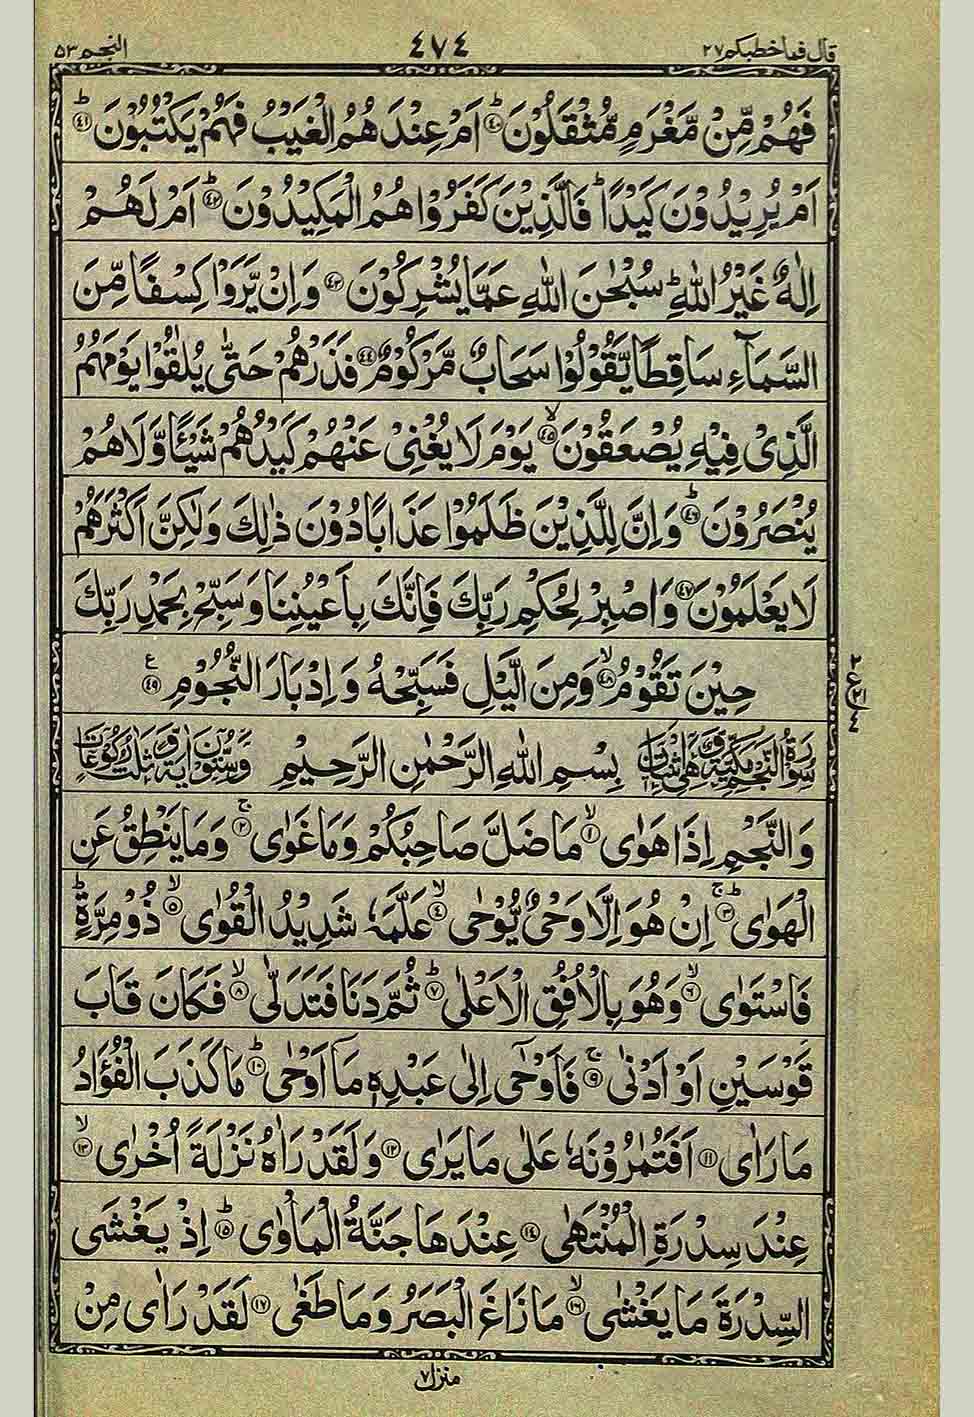 قال فما خطبكم ٢٧ ٤٧٤ النجم ٥٣
فَهُمْ مِّنْ مَّغْرَمٍ مُّثْقَلُوْنَ ؕ﴿٤٠﴾ اَمْ عِنْدَهُمُ الْغَيْبُ فَهُمْ يَكْتُبُوْنَ ؕ﴿٤١﴾
اَمْ يُرِيْدُوْنَ كَيْدًا ؕ فَالَّذِيْنَ كَفَرُوْا هُمُ الْمَكِيْدُوْنَ ؕ﴿٤٢﴾ اَمْ لَهُمْ
اِلٰهٌ غَيْرُ اللّٰهِ ؕ سُبْحٰنَ اللّٰهِ عَمَّا يُشْرِكُوْنَ ﴿٤٣﴾ وَاِنْ يَّرَوْا كِسْفًا مِّنَ
السَّمَآءِ سَاقِطًا يَّقُوْلُوْا سَحَابٌ مَّرْكُوْمٌ ﴿٤٤﴾ فَذَرْهُمْ حَتّٰى يُلٰقُوْا يَوْمَهُمُ
الَّذِىْ فِيْهِ يُصْعَقُوْنَ ۙ﴿٤٥﴾ يَوْمَ لَا يُغْنِىْ عَنْهُمْ كَيْدُهُمْ شَيْـًٔا وَّلَا هُمْ
يُنْصَرُوْنَ ؕ﴿٤٦﴾ وَاِنَّ لِلَّذِيْنَ ظَلَمُوْا عَذَابًا دُوْنَ ذٰلِكَ وَلٰكِنَّ اَكْثَرَهُمْ
لَا يَعْلَمُوْنَ ﴿٤٧﴾ وَاصْبِرْ لِحُكْمِ رَبِّكَ فَاِنَّكَ بِاَعْيُنِنَا وَسَبِّحْ بِحَمْدِ رَبِّكَ
حِيْنَ تَقُوْمُ ۙ﴿٤٨﴾ وَمِنَ الَّيْلِ فَسَبِّحْهُ وَاِدْبَارَ النُّجُوْمِ ﴿٤٩﴾ ع
سُوْرَةُ النَّجْمِ مَكِّيَّةٌ وَّهِىَ اثْنَتَانِ بِسْمِ اللّٰهِ الرَّحْمٰنِ الرَّحِيْمِ وَسِتُّوْنَ اٰيَةً وَّثَلٰثُ رُكُوْعَاتٍ
وَالنَّجْمِ اِذَا هَوٰى ۙ﴿١﴾ مَا ضَلَّ صَاحِبُكُمْ وَمَا غَوٰى ۚ﴿٢﴾ وَمَا يَنْطِقُ عَنِ
الْهَوٰى ؕ﴿٣﴾ اِنْ هُوَ اِلَّا وَحْىٌ يُّوْحٰى ۙ﴿٤﴾ عَلَّمَهٗ شَدِيْدُ الْقُوٰى ۙ﴿٥﴾ ذُوْ مِرَّةٍ ؕ
فَاسْتَوٰى ۙ﴿٦﴾ وَهُوَ بِالْاُفُقِ الْاَعْلٰى ؕ﴿٧﴾ ثُمَّ دَنَا فَتَدَلّٰى ۙ﴿٨﴾ فَكَانَ قَابَ
قَوْسَيْنِ اَوْ اَدْنٰى ۚ﴿٩﴾ فَاَوْحٰۤى اِلٰى عَبْدِهٖ مَاۤ اَوْحٰى ؕ﴿١٠﴾ مَا كَذَبَ الْفُؤَادُ
مَا رَاٰى ﴿١١﴾ اَفَتُمٰرُوْنَهٗ عَلٰى مَا يَرٰى ﴿١٢﴾ وَلَقَدْ رَاٰهُ نَزْلَةً اُخْرٰى ۙ﴿١٣﴾
عِنْدَ سِدْرَةِ الْمُنْتَهٰى ﴿١٤﴾ عِنْدَهَا جَنَّةُ الْمَاْوٰى ؕ﴿١٥﴾ اِذْ يَغْشَى
السِّدْرَةَ مَا يَغْشٰى ۙ﴿١٦﴾ مَا زَاغَ الْبَصَرُ وَمَا طَغٰى ﴿١٧﴾ لَقَدْ رَاٰى مِنْ
منزل ٧